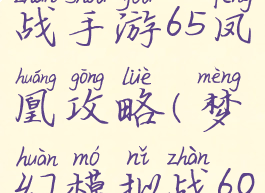 zhàn shǒu yóu fèng
战手游65凤
huáng gōng lüè mèng
凰攻略(梦
huàn mó nǐ zhàn
幻模拟战60